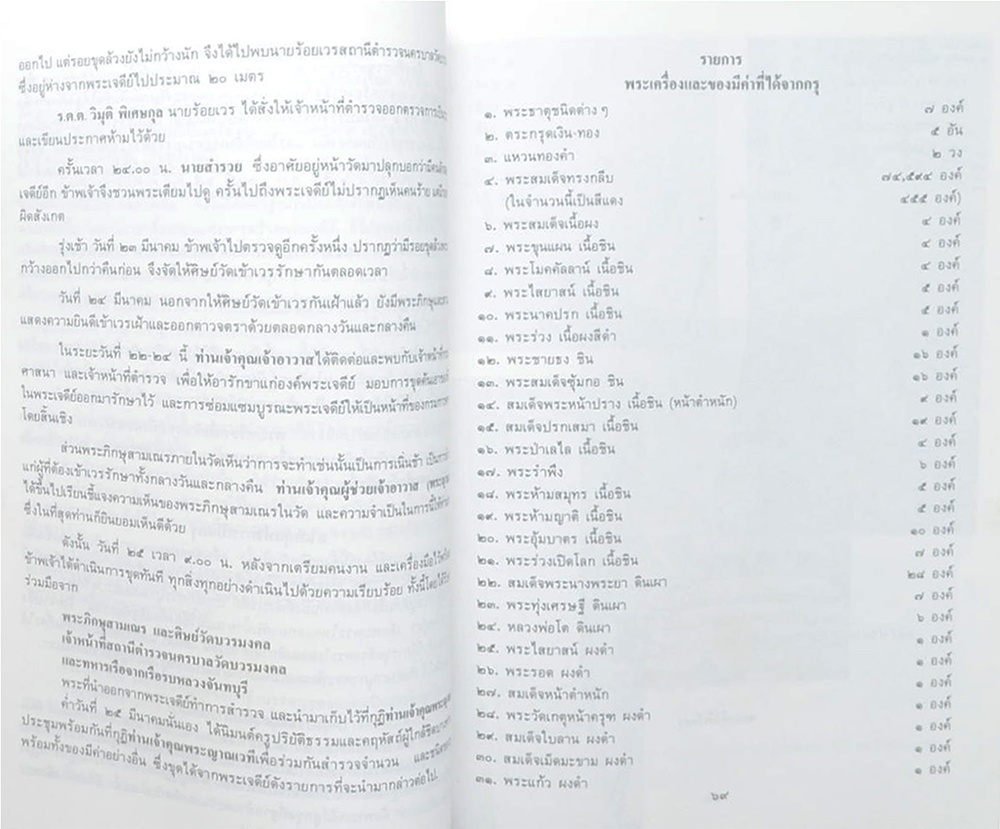 ออกไป แต่รอยขุดล้วงยังไม่กว้างนัก จึงได้ไปพบนายร้อยเวรสถานีตำรวจนครบาล
ซึ่งอยู่ห่างจากพระเจดีย์ไปประมาณ ๒๐ เมตร
ร.ต.ต. วิมุติ พิเศษกุล นายร้อยเวร ได้สั่งให้เจ้าหน้าที่ตำรวจออกตรวจการ
และเขียนประกาศห้ามไว้ด้วย
ครั้นเวลา ๒๔.๐๐ น. นายสำรวย ซึ่งอาศัยอยู่หน้าวัดมาปลุกบอกว่ามีคน
เจดีย์อีก ข้าพเจ้าจึงชวนพระเตียมไปดู ครั้นไปถึงพระเจดีย์ไม่ปรากฏเห็นคนร้าย
ผิดสังเกต
รุ่งเช้า วันที่ ๒๓ มีนาคม ข้าพเจ้าไปตรวจดูอีกครั้งหนึ่ง ปรากฏว่ามีรอยขุดล้วง
กว้างออกไปกว่าคืนก่อน จึงจัดให้ศิษย์วัดเข้าเวรรักษากันตลอดเวลา
วันที่ ๒๔ มีนาคม นอกจากให้ศิษย์วัดเข้าเวรกันเฝ้าแล้ว ยังมีพระภิกษุ
แสดงความยินดีเข้าเวรเฝ้าและออกตาวจตราด้วยตลอดกลางวันและกลางคืน
ในระยะวันที่ ๒๒-๒๔ นี้ ท่านเจ้าคุณเจ้าอาวาสได้ติดต่อและพบกับเจ้าหน้าที่
ศาสนา และเจ้าหน้าที่ตำรวจ เพื่อให้อารักขาแก่องค์พระเจดีย์ มอบการขุดค้น
ในพระเจดีย์ออกมารักษาไว้ และการซ่อมแซมบูรณะพระเจดีย์ให้เป็นหน้าที่ของ
โดยสิ้นเชิง
ส่วนพระภิกษุสามเณรภายในวัดเห็นว่าการจะทำเช่นนั้นเป็นการเนิ่นช้า
แก่ผู้ที่ต้องเข้าเวรรักษาทั้งกลางวันและกลางคืน ท่านเจ้าคุณผู้ช่วยเจ้าอาวาส
ได้ขึ้นไปเรียนชี้แจงความเห็นของพระภิกษุสามเณรในวัด และความจำเป็นในการนี้
ซึ่งในที่สุดท่านก็ยินยอมเห็นดีด้วย
ดังนั้น วันที่ ๒๕ เวลา ๙.๐๐ น. หลังจากเตรียมคนงาน และเครื่องมือไว้
ข้าพเจ้าได้ดำเนินการขุดทันที ทุกสิ่งทุกอย่างดำเนินไปด้วยความเรียบร้อย ทั้งนี้โดย
ร่วมมือจาก
พระภิกษุสามเณร และศิษย์วัดบวรมงคล
เจ้าหน้าที่สถานีตำรวจนครบาลวัดบวรมงคล
และทหารเรือจากเรือรบหลวงจันทบุรี
พระที่นำออกจากพระเจดีย์ทำการสำรวจ และนำมาเก็บไว้ที่กุฏิท่านเจ้าคุณ
ค่ำวันที่ ๒๕ มีนาคมนั่นเอง ได้นิมนต์ครูปริยัติธรรมและคฤหัสถ์ผู้ใกล้ชิด
ประชุมพร้อมกันที่กุฏิท่านเจ้าคุณพระญาณเวทีเพื่อร่วมกันสำรวจจำนวน
พร้อมทั้งของมีค่าอย่างอื่น ซึ่งขุดได้จากพระเจดีย์ดังรายการที่จะนำมากล่าวต่อไป.
รายการ
พระเครื่องและของมีค่าที่ได้จากกรุ
๑. พระธาตุชนิดต่าง ๆ ๗ องค์
๒. ตระกรุดเงิน-ทอง ๕ อัน
๓. แหวนทองคำ ๒ วง
๔. พระสมเด็จทรงกลีบ ๗๔,๕๙๔ องค์
(ในจำนวนนี้เป็นสีแดง ๔๕๕ องค์)
๖. พระสมเด็จเนื้อผง ๔ องค์
๗. พระขุนแผน เนื้อชิน ๔ องค์
๘. พระโมคคัลลาน์ เนื้อชิน ๔ องค์
๙. พระไสยาสน์ เนื้อชิน ๕ องค์
๑๐. พระนาคปรก เนื้อชิน ๕ องค์
๑๑. พระร่วง เนื้อผงสีดำ ๑ องค์
๑๒. พระชายธง ชิน ๑๖ องค์
๑๓. พระสมเด็จซุ้มกอ ชิน ๑๖ องค์
๑๔. สมเด็จพระหน้าปราง เนื้อชิน (หน้าตำหนัก) ๙ องค์
๑๕. สมเด็จปรกเสมา เนื้อชิน ๑๙ องค์
๑๖. พระป่าเลไล เนื้อชิน ๔ องค์
๑๗. พระรำพึง ๖ องค์
๑๘. พระห้ามสมุทร เนื้อชิน ๕ องค์
๑๙. พระห้ามญาติ เนื้อชิน ๕ องค์
๒๐. พระอุ้มบาตร เนื้อชิน ๑๐ องค์
๒๑. พระร่วงเปิดโลก เนื้อชิน ๗ องค์
๒๒. สมเด็จพระนางพระยา ดินเผา ๒๘ องค์
๒๓. พระทุ่งเศรษฐี ดินเผา ๗ องค์
๒๔. หลวงพ่อโต ดินเผา ๖ องค์
๒๕. พระไสยาสน์ ผงดำ ๑ องค์
๒๖. พระรอด ผงดำ ๑ องค์
๒๗. สมเด็จหน้าตำหนัก ๑ องค์
๒๘. พระวัดเกตุหน้าครุฑ ผงดำ ๑ องค์
๒๙. สมเด็จใบลาน ผงดำ ๑ องค์
๓๐. สมเด็จเม็ดมะขาม ผงดำ ๑ องค์
๓๑. พระแก้ว ผงดำ ๑ องค์
๖๙